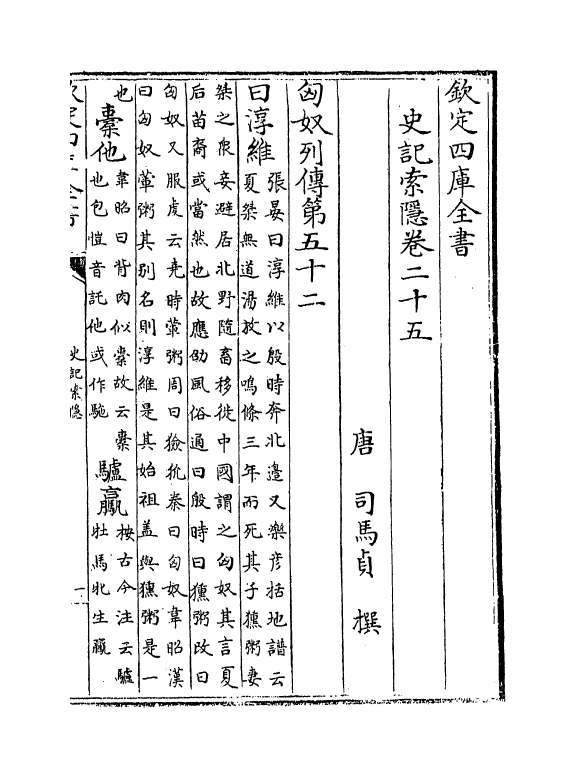 欽定四庫全書
史記索隱卷二十五
唐 司馬貞 撰
匈奴列傳第五十二
曰淳維張晏曰淳維以殷時奔北邊又樂彦括地譜云
夏桀無道湯放之鳴條三年而死其子獯粥妻
桀之衆妾避居北野隨畜移徙中國謂之匈奴其言夏
后苗裔或當然也故應劭風俗通曰殷時曰獯粥改曰
匈奴又服虔云堯時葷粥周曰獫狁秦曰匈奴韋昭漢
曰匈奴葷粥其别名則淳維是其始祖盖與獯粥是一
也
橐他韋昭曰背肉似橐故云橐
也包愷音託他或作馳
驘驢按古今注云驢
牡馬牝生驘
史記索隱
一